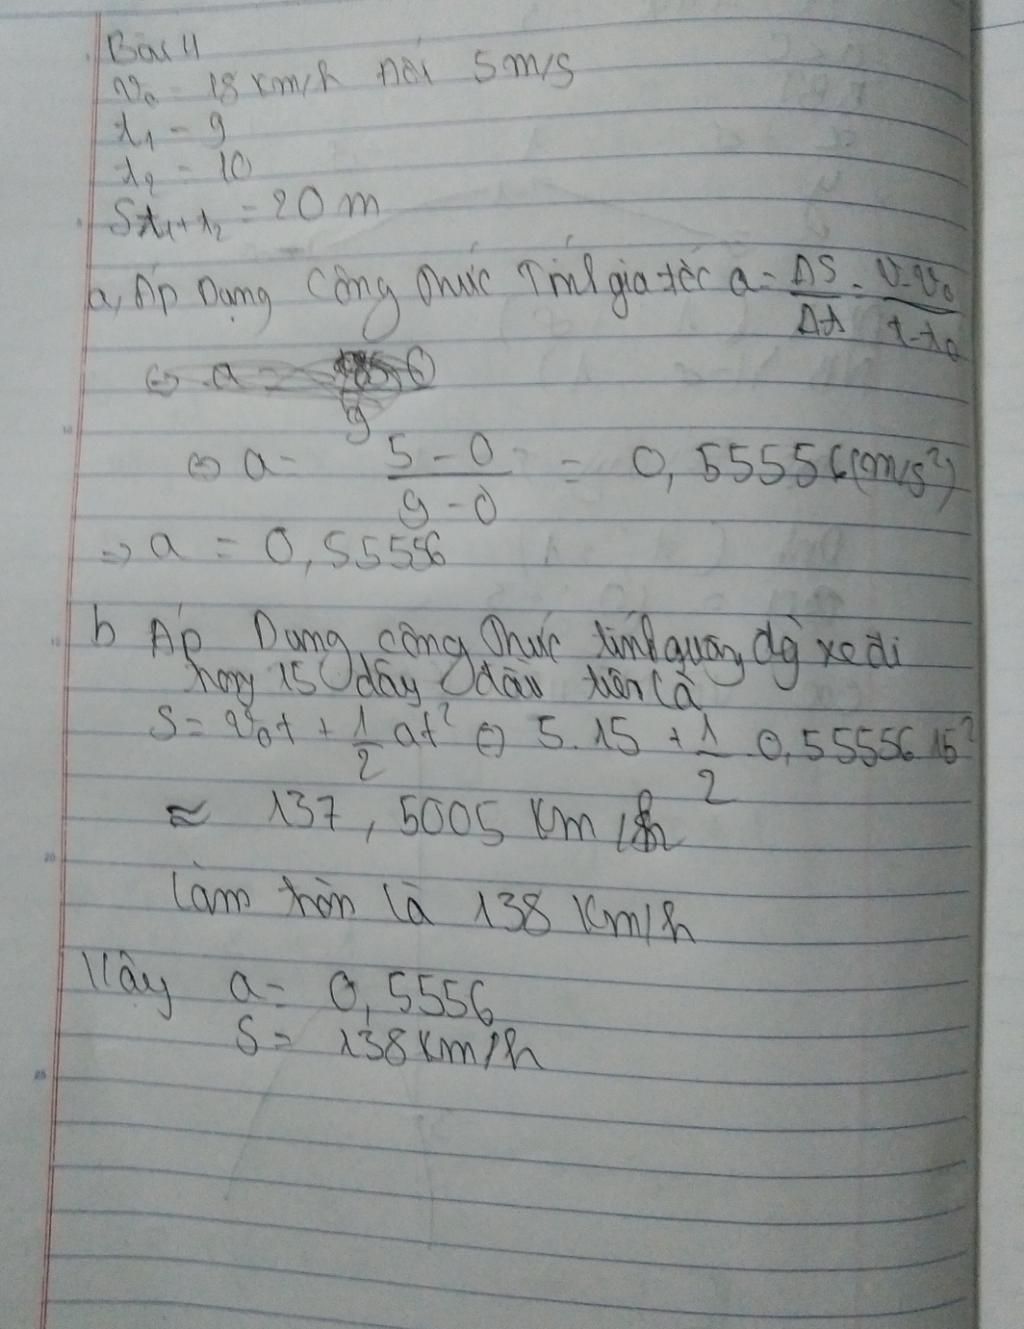 Bài 11
v₀ = 18 km/h hay 5 m/s
t₁ = 9
t₂ = 10
St₁+t₂ = 20 m
a, Áp Dụng Công thức Tính gia tốc a = ΔS/Δt = v-v₀/t-t₀
⇔ a =
⇔ a = 5-0/9-0 = 0,55556 (m/s²)
⇒ a = 0,55556
b Áp Dụng công thức tính quãng đg xe đi
trong 15 dây đầu tiên là
S = v₀t + 1/2 at² ⇔ 5.15 + 1/2 0,55556 15²
≈ 137,5005 Km/h
làm tròn là 138 Km/h
Vậy a = 0,5556
S = 138 Km/h